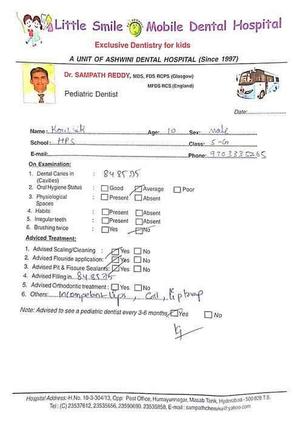 Little Smile Mobile Dental Hospital
Exclusive Dentistry for kids
A UNIT OF ASHWINI DENTAL HOSPITAL (Since 1997)
Dr. SAMPATH REDDY, MDS, FDS RCPS (Glasgow)
MFDS RCS (England)
Pediatric Dentist
Date:
Name: Age: 10 Sex: male
School: HPS Class: 5-G
E-mail: Phone:
On Examination:
1. Dental Caries in : 84,85,75
(Cavities)
2. Oral Hygiene Status : Good Average Poor
3. Physiological : Present Absent
Spaces
4. Habits : Present Absent
5. Irregular teeth : Present Absent
6. Brushing twice : Yes No
Adviced Treatment:
1. Advised Scaling/Cleaning : Yes No
2. Advised Flouride application: Yes No
3. Advised Pit & Fissure Sealants: Yes No
4. Advised Filling in 84,85,75
5. Advised Orthodontic treatment : Yes No
6. Others: Incompetent lips,
Note: Advised to see a pediatric dentist every 3-6 months Yes No
Hospital Address: H.No. 10-3-304/13, Opp: Post Office, Humayunnagar, Masab Tank, Hyderabad - 500 028 T.S.
Tel: (C) 23537612, 23535656, 23590690, 23535858, E-mail: